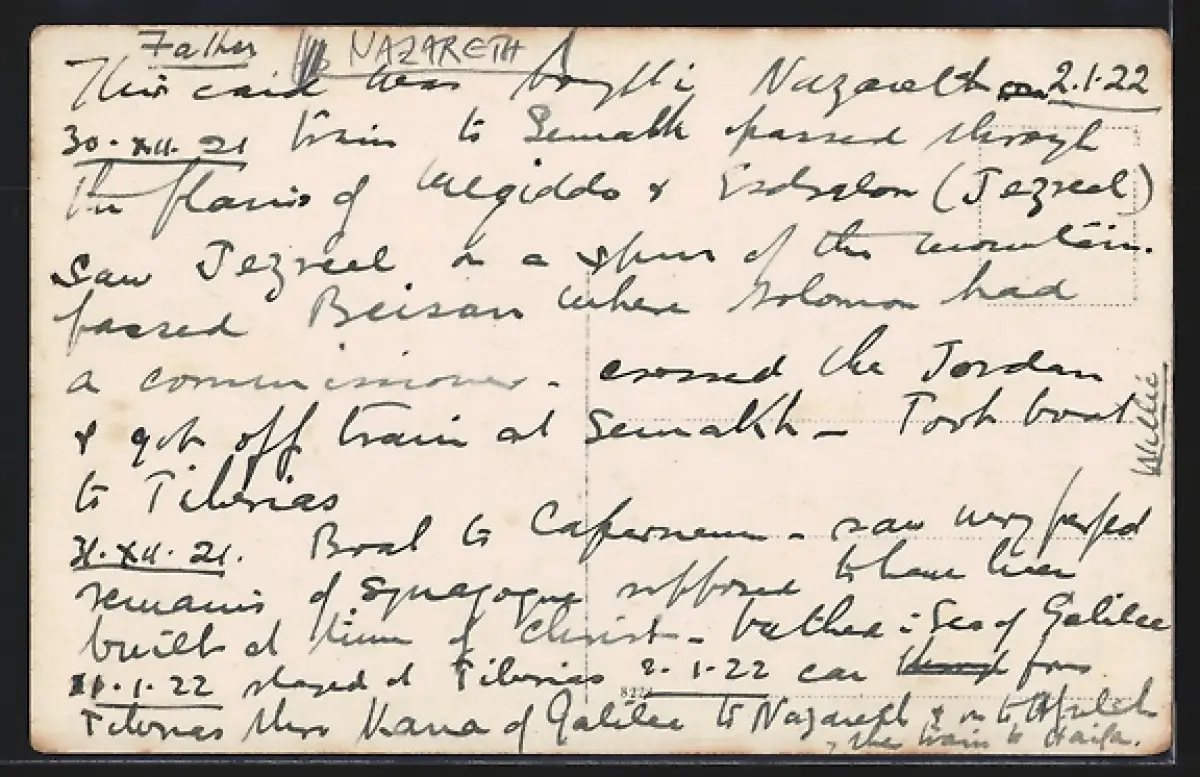 Father NAZARETH
This card was bought in Nazareth on 2.1.22
30.XII.21 train to Semakh passed through
the plains of Megiddo & Esdraelon (Jezreel)
saw Jezreel on a spur of the mountain.
passed Beisan where Solomon had
a commissioner. crossed the Jordan
& got off train at Semakh – Took boat
to Tiberias
31.XII.21. Boat to Capernaum – saw very perfect
remains of synagogue supposed to have been
built at time of Christ – bathed in Sea of Galilee
1.1.22 stayed at Tiberias 2.1.22 car through from
Tiberias thro Kana of Galilee to Nazareth & on to Afuleh
, the train to Haifa.
Willie